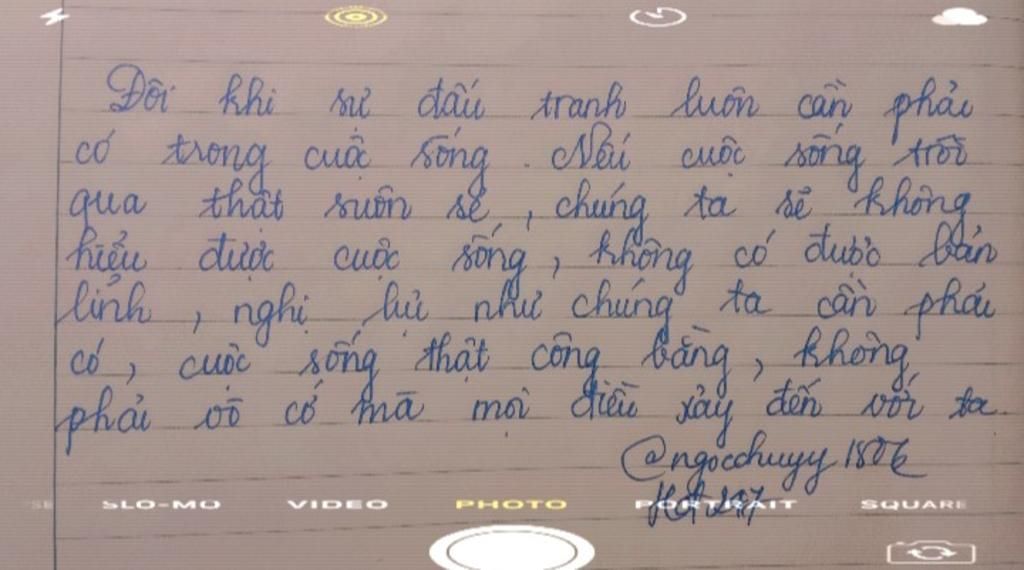 Đôi khi sự đấu tranh luôn cần phải
có trong cuộc sống. Nếu cuộc sống trôi
qua thật suôn sẻ, chúng ta sẽ không
hiểu được cuộc sống, không có được bản
lĩnh, nghị lực như chúng ta cần phải
có, cuộc sống thật công bằng, không
phải vô cớ mà mọi điều xảy đến với ta.
@ngocchuyy
SLO-MO VIDEO PHOTO PORTRAIT SQUARE